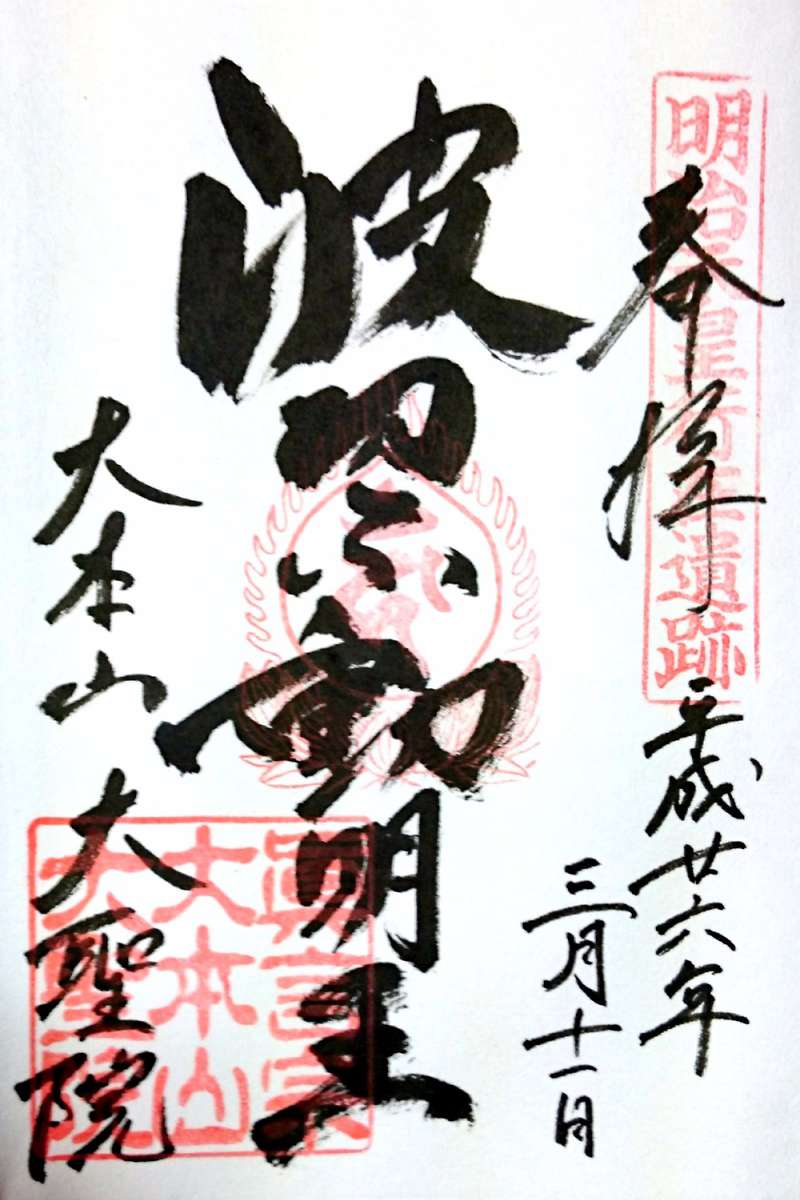 明治天皇行幸遺跡
奉拝
平成廿六年
三月十一日
波切不動明王
大本山 大聖院
眞言宗
大本山
大聖院